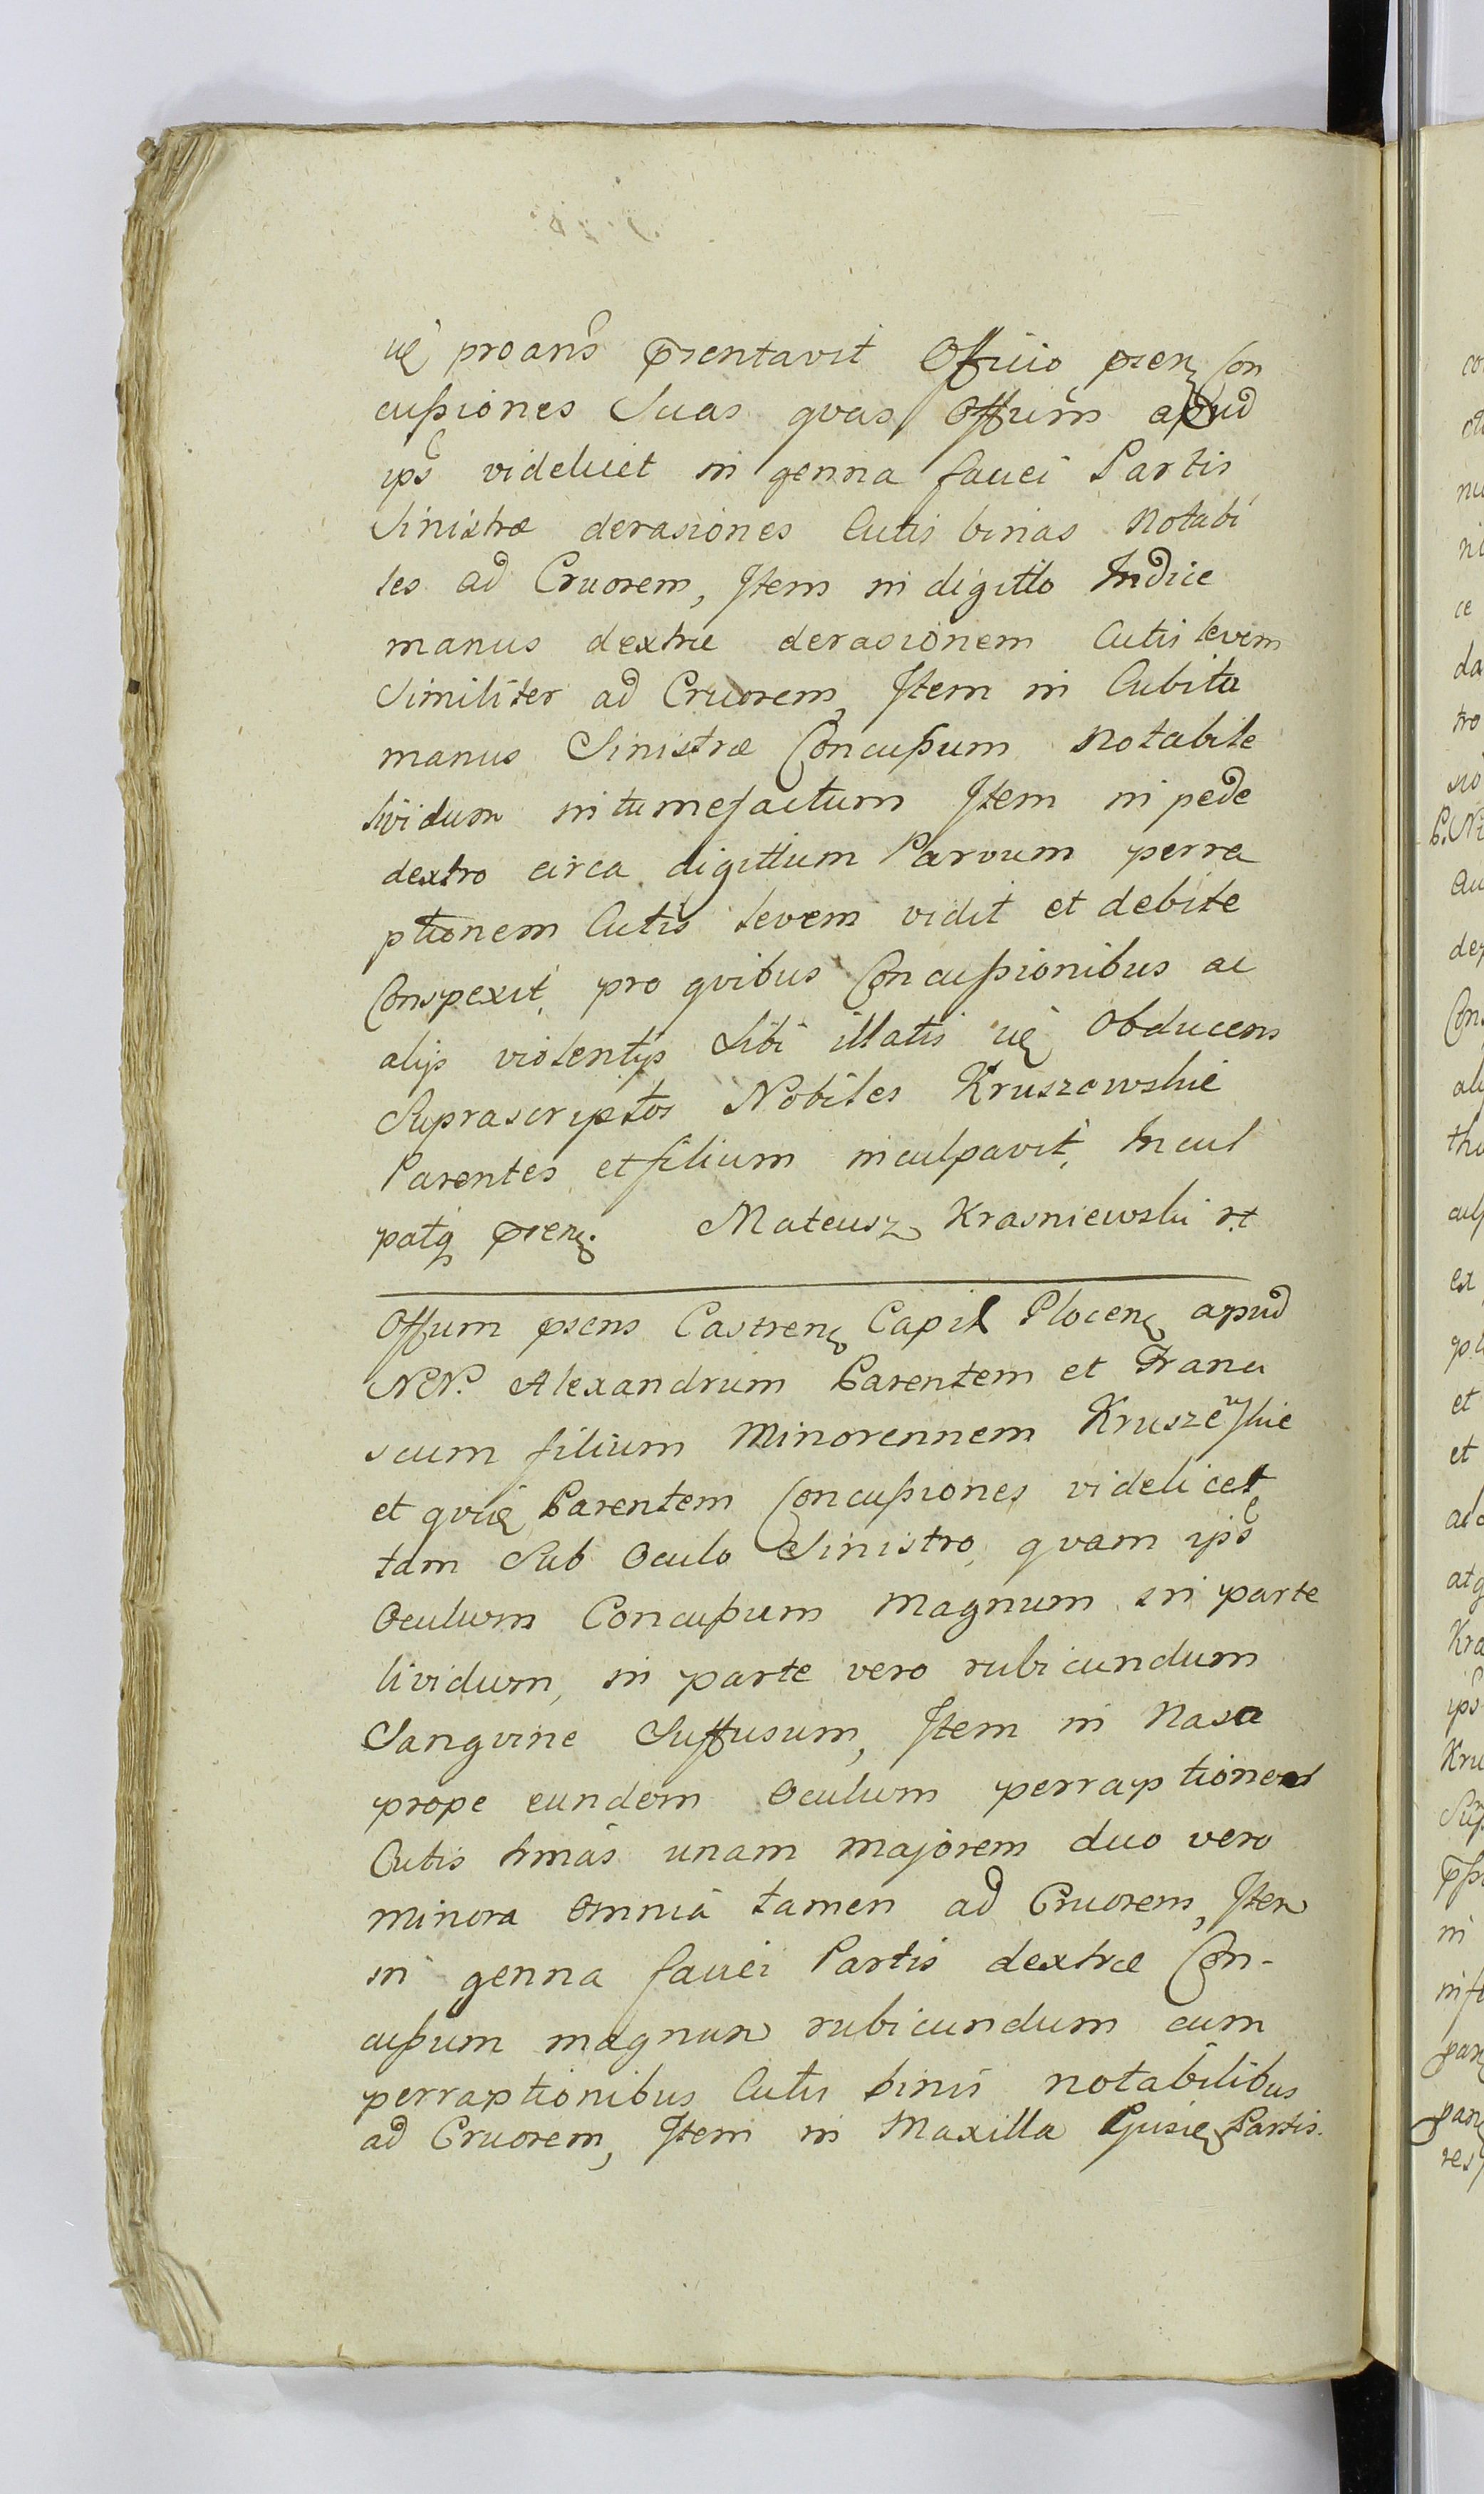 uę proans pręsentavit Officio pręsen Con
cussiones Suas qvas Offium apud
ips videlicet in genna fauci Partis
Sinistræ derasiones Cutis binas Notabi
les ad Cruorem, Item in digitto Indice
manus dextræ derasionem Cutis levem
Similiter ad Cruorem, Item in Cubita
manus Sinistræ Concussum Notabile
lividum intumefactum Item in pede
dextro circa digittum Parvum perra
ptionem Cutis levem vidit et debite
Conspexit, pro qvibus Concussionibus ac
alijs violentijs Sibi illatis uę Obducens
Suprascriptos Nobiles Kruszewskie
Parentes et filium inculpavit, Incul
patq pręsen. Mateusz Krasniewski
Offium pręsens Castren Capit Plocen apud
NN. Alexandrum Parentem et Franci
scum filium Minorennem Kruszewskie
et qvię Parentem Concussiones videlicet
tam Sub Oculo Sinistro, qvam ips
Oculum Concussum Magnum in parte
lividum, in parte vero rubicundum
Sangvine Suffusum, Item in Naso
prope eundem Oculum perraptiones
Cutis trinas unam majorem duo vero
minora Omnia tamen ad Cruorem, Item
in genna fauci Partis dextræ Con-
cussum magnum rubicundum cum
perraptionibus Cutis binis notabilibus
ad Cruorem, Item in Maxilla Partis.